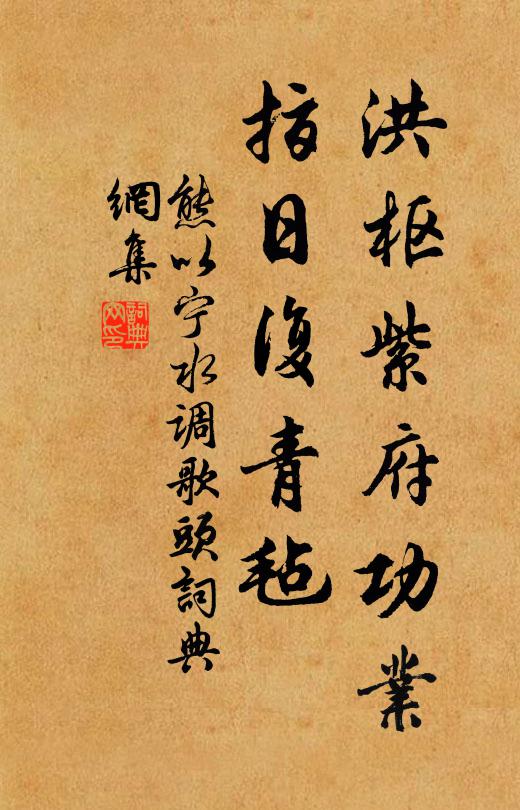 洪枢紫府功業
指日復青毡
熊以宁水调歌頭詞典
網集
詞典
文印